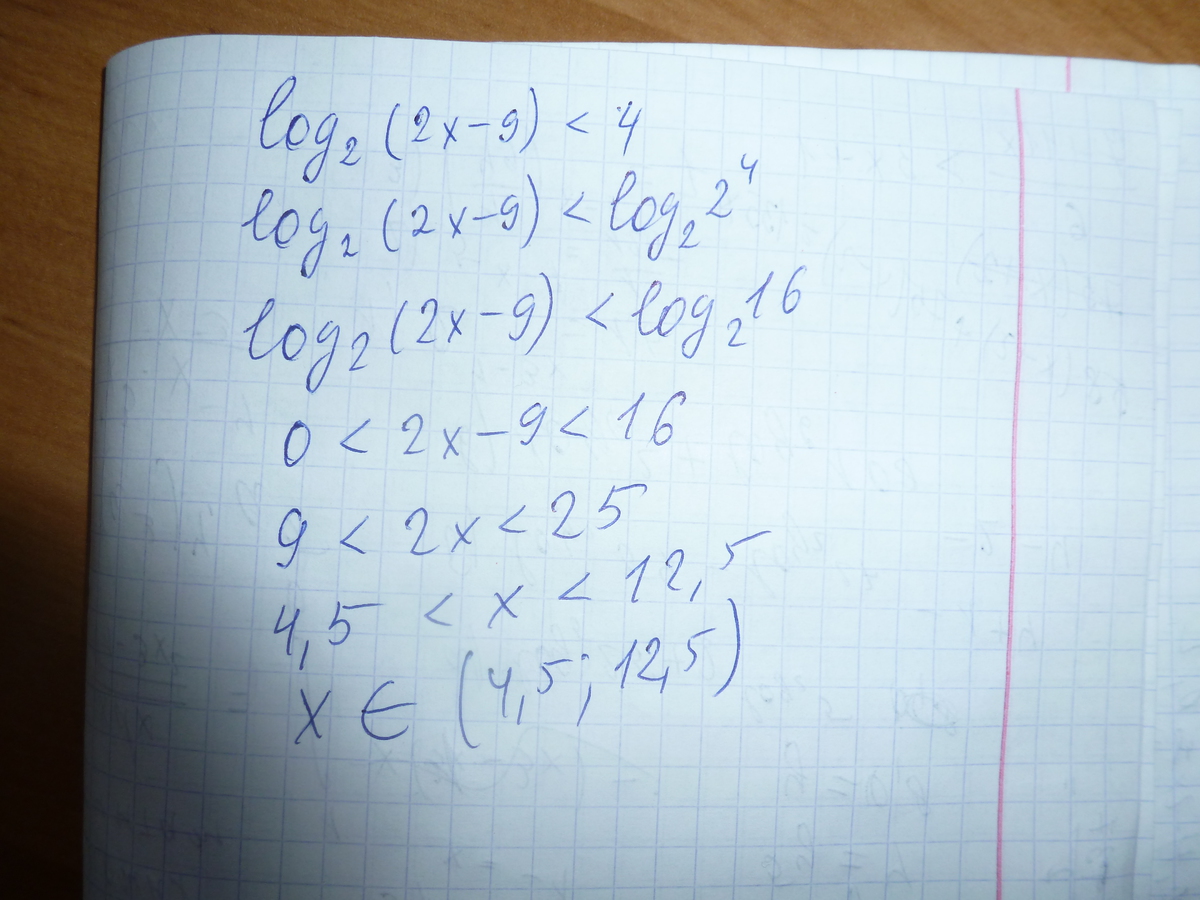 log₂ (2x-9) < 4
log₂ (2x-9) < log₂ 2⁴
log₂ (2x-9) < log₂ 16
0 < 2x-9 < 16
9 < 2x < 25
4,5 < x < 12,5
x ∈ (4,5; 12,5)